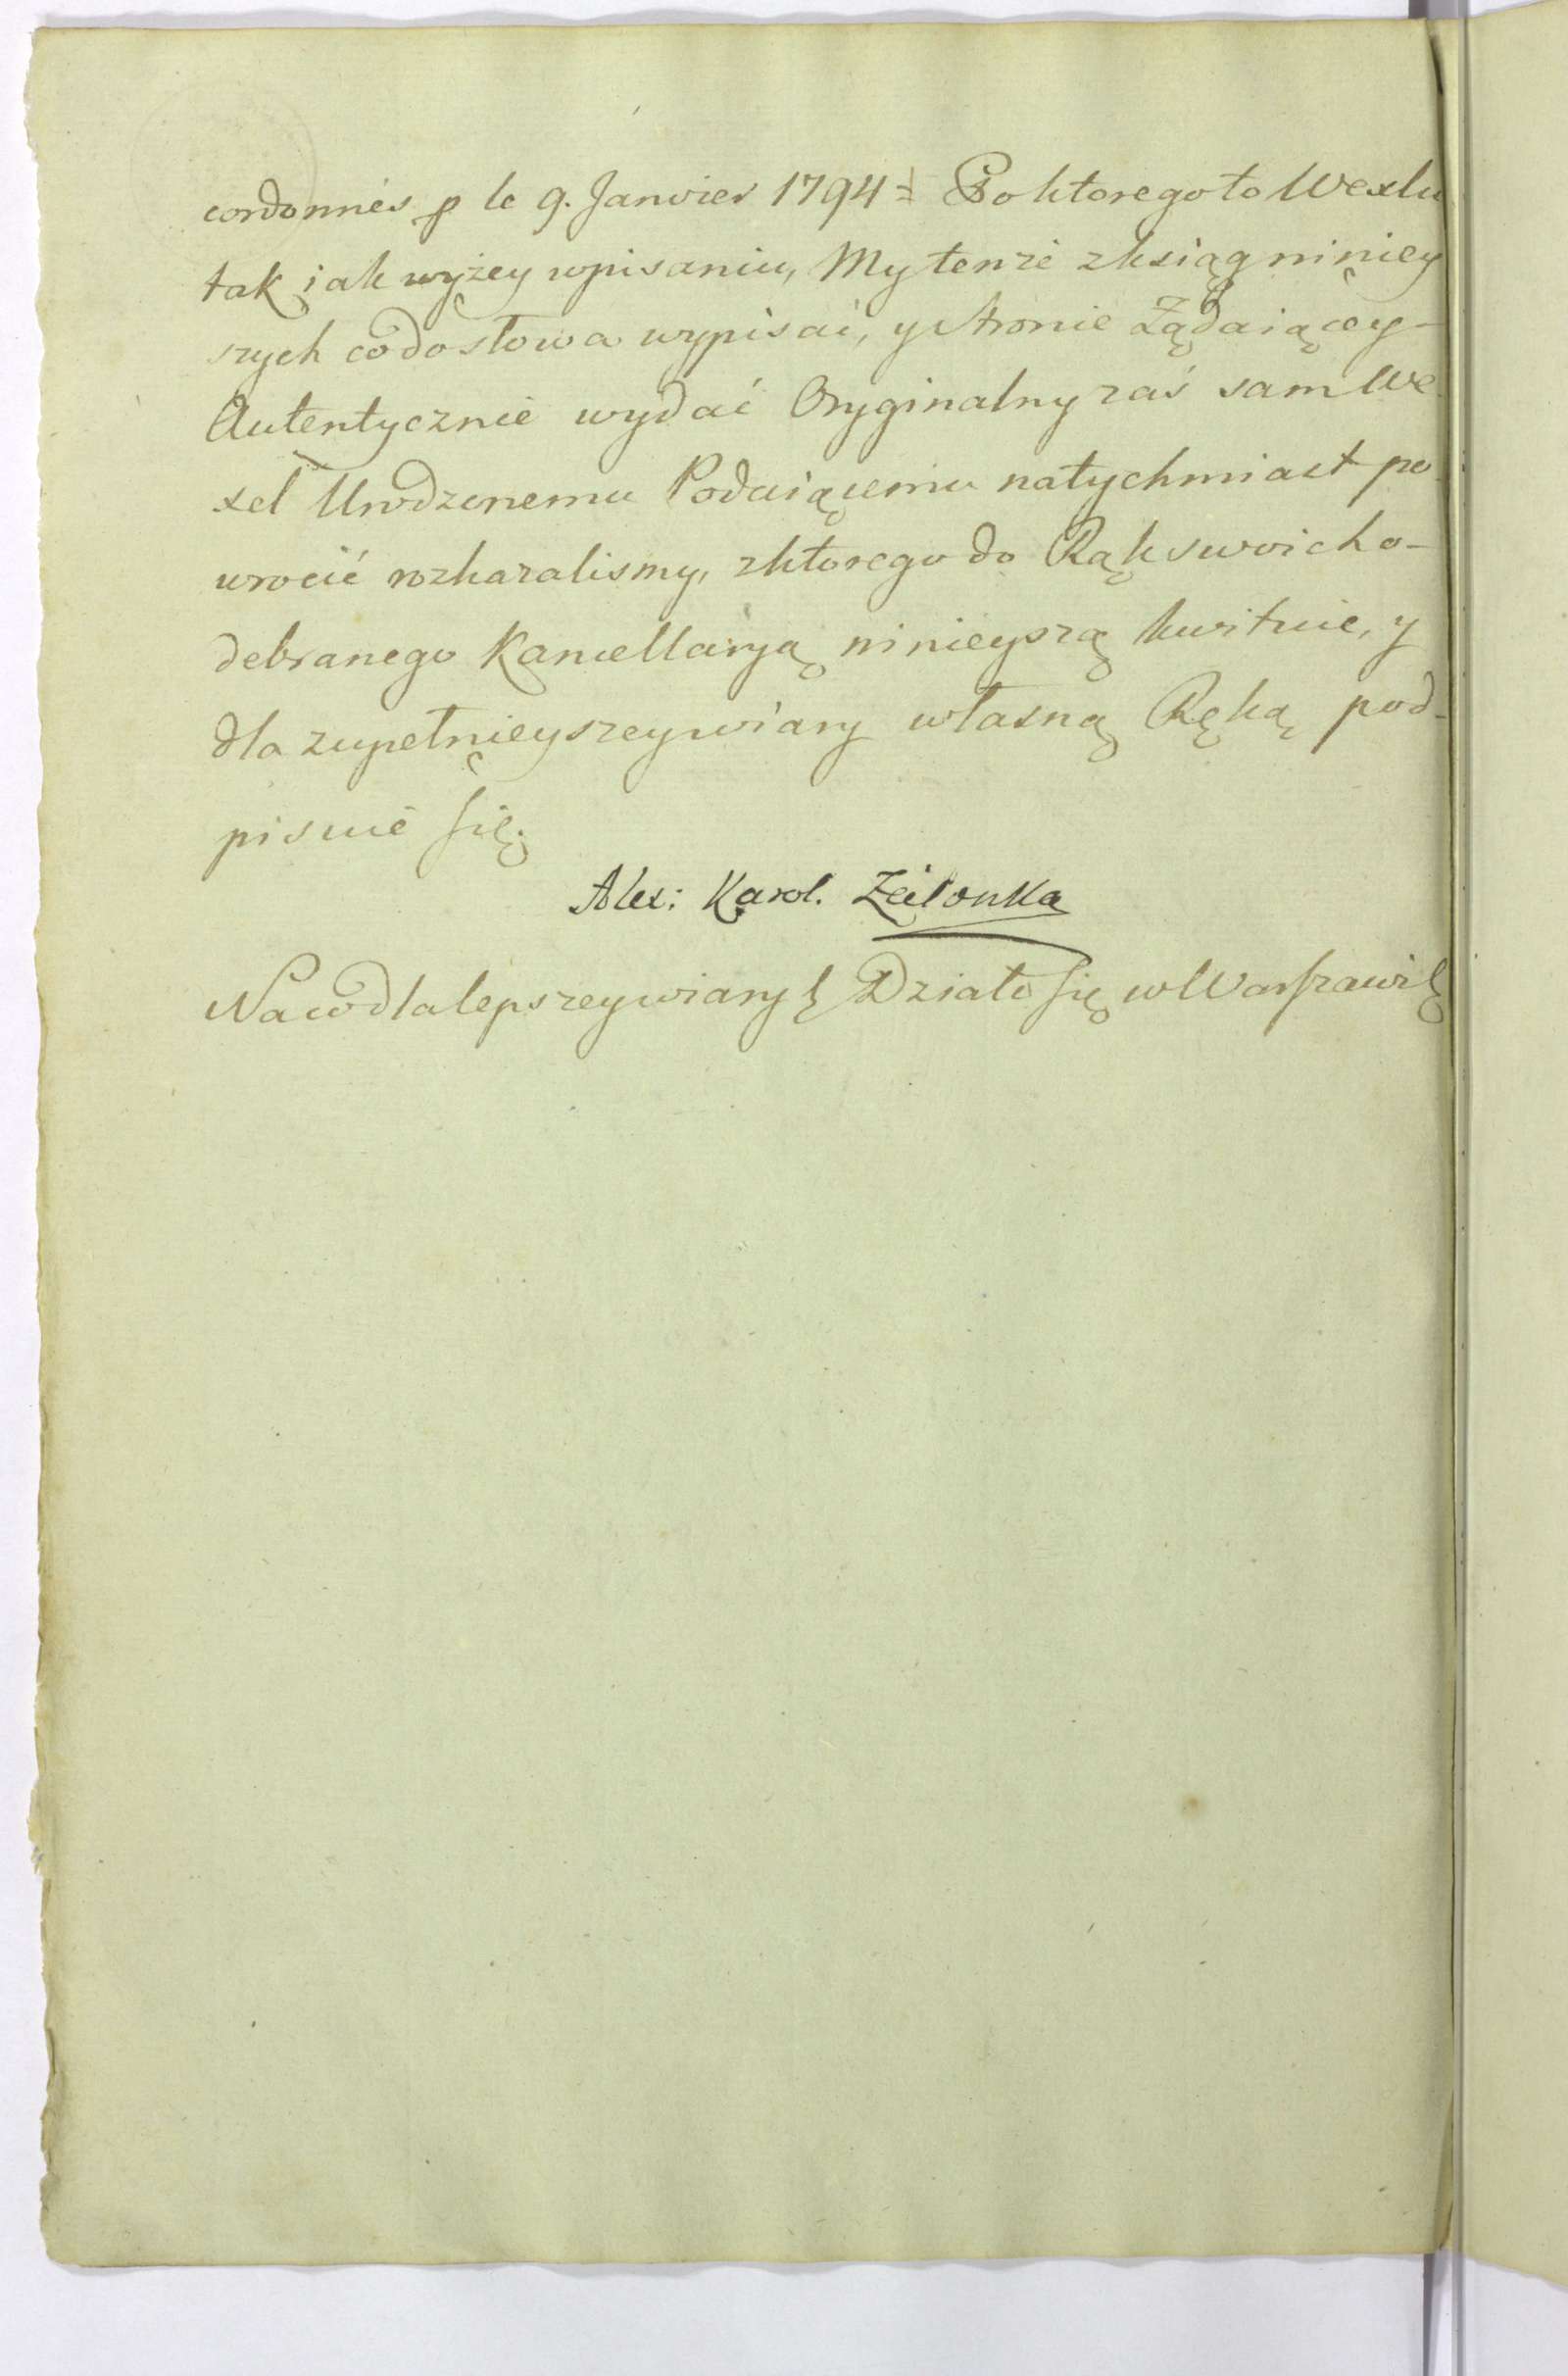 cordonniés p le 9. Janvier 1794 = Po ktorego to Wexlu
tak iak wyżey wpisaniu, My tenże z ksiąg niniey
szych co do słowa wypisać, y stronie Żądaiącey-
Autentycznie wydać Oryginalny zaś sam We
xel Urodzonemu Podaiącemu natychmiast po
wrocić rozkazalismy, z ktorego do Rąk swoich o-
debranego Kancellaryą ninieyszą kwituie, y
dla zupełnieyszey wiary własną Ręką pod-
pisuie się.
Alex: Karol. Zeilonka
Na co dla lepszey wiary Działo się w Warszawie